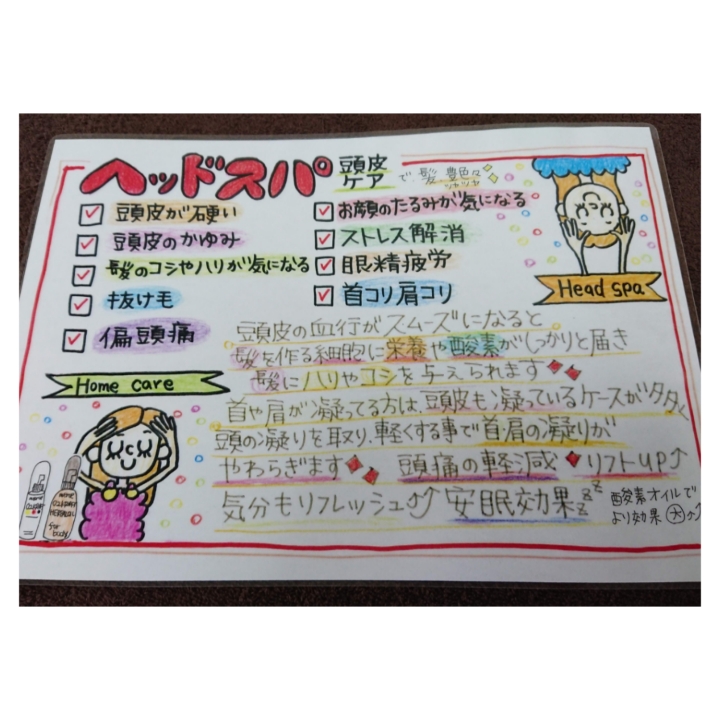 ヘッドスパ 頭皮ケア で髪 艶色々
ツヤツヤ
頭皮が硬い
頭皮のかゆみ
髪のコシやハリが気になる
抜け毛
偏頭痛
お顔のたるみが気になる
ストレス解消
眼精疲労
首コリ肩コリ
Head spa
頭皮の血行がスムーズになると
髪を作る細胞に栄養や酸素がしっかりと届き
髪にハリやコシを与えられます
首や肩が凝ってる方は、頭皮も凝っているケースが多く
頭の凝りを取り、軽くする事で首肩の凝りが
やわらぎます 頭痛の軽減 リフトUP↑
気分もリフレッシュ⤴⤴ 安眠効果zzz
酸素オイルで
より効果大⤴
Home care
for
body